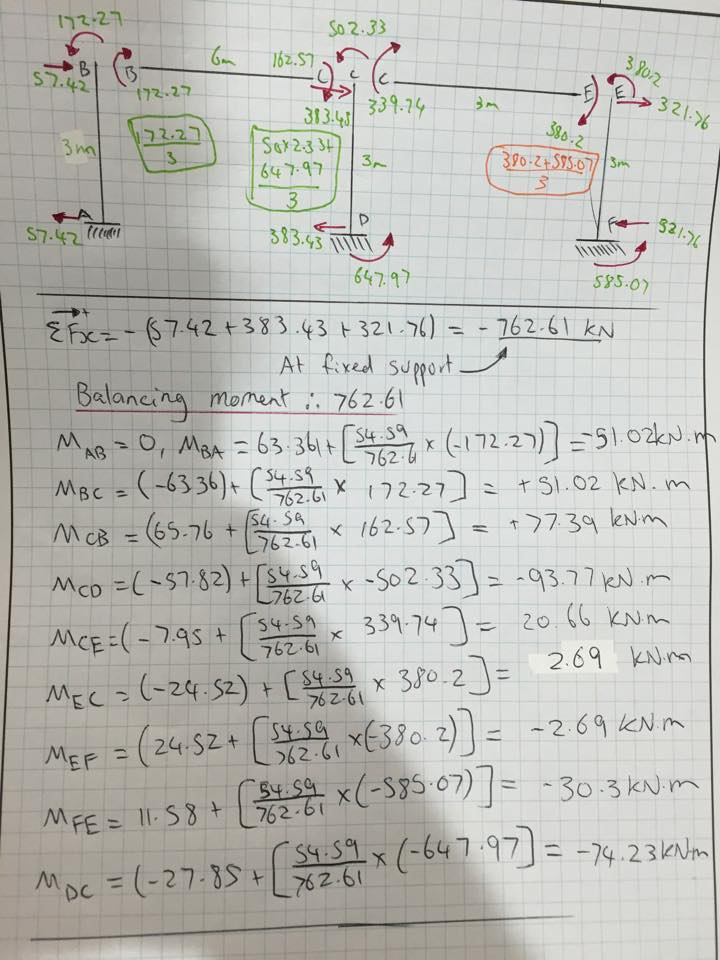 172.27
502.33
57.42 B B 6m 162.57 C C C E E 380.2
172.27 383.43 339.74 3m 380.2 321.76
3m 172.27/3 50x2.33+647.97/3 3m 380.2+585.07/3 3m
57.42 A 383.43 D F 321.76
647.97 585.07
ΣFx= -(57.42+383.43+321.76) = -762.61 kN
At fixed support
Balancing moment ∴ 762.61
M_AB = 0, M_BA = 63.361+[54.59/762.6 x (-172.27)] = -51.02kN.m
M_BC = (-63.36)+[54.59/762.61 x 172.27] = +51.02 kN.m
M_CB = (65.76 + [54.59/762.61 x 162.57] = +77.39 kN.m
M_CD = (-57.82)+[54.59/762.61 x -502.33] = -93.77 kN.m
M_CE = (-7.95 + [54.59/762.61 x 339.74] = 20.66 kN.m
M_EC = (-24.52) + [54.59/762.61 x 380.2] = 2.69 kN.m
M_EF = (24.52 + [54.59/762.61 x(-380.2)] = -2.69 kN.m
M_FE = 11.58 + [54.59/762.61 x(-585.07)] = -30.3 kN.m
M_DC = (-27.85 + [54.59/762.61 x (-647.97] = -74.23 kN.m